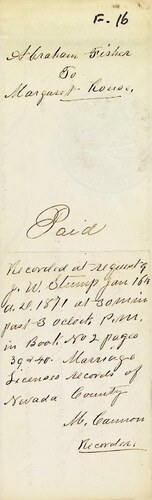 F-16
Abraham Fisher
To
Margaret Rouse.
Paid
Recorded at request of
J. W. Stump Jan 16th
A.D. 1871 at 30 min
past 3 oclock P.M.
in Book No 2 pages
39 & 40. Marriage
Licenses records of
Nevada County
M. Cannon
Recorder.